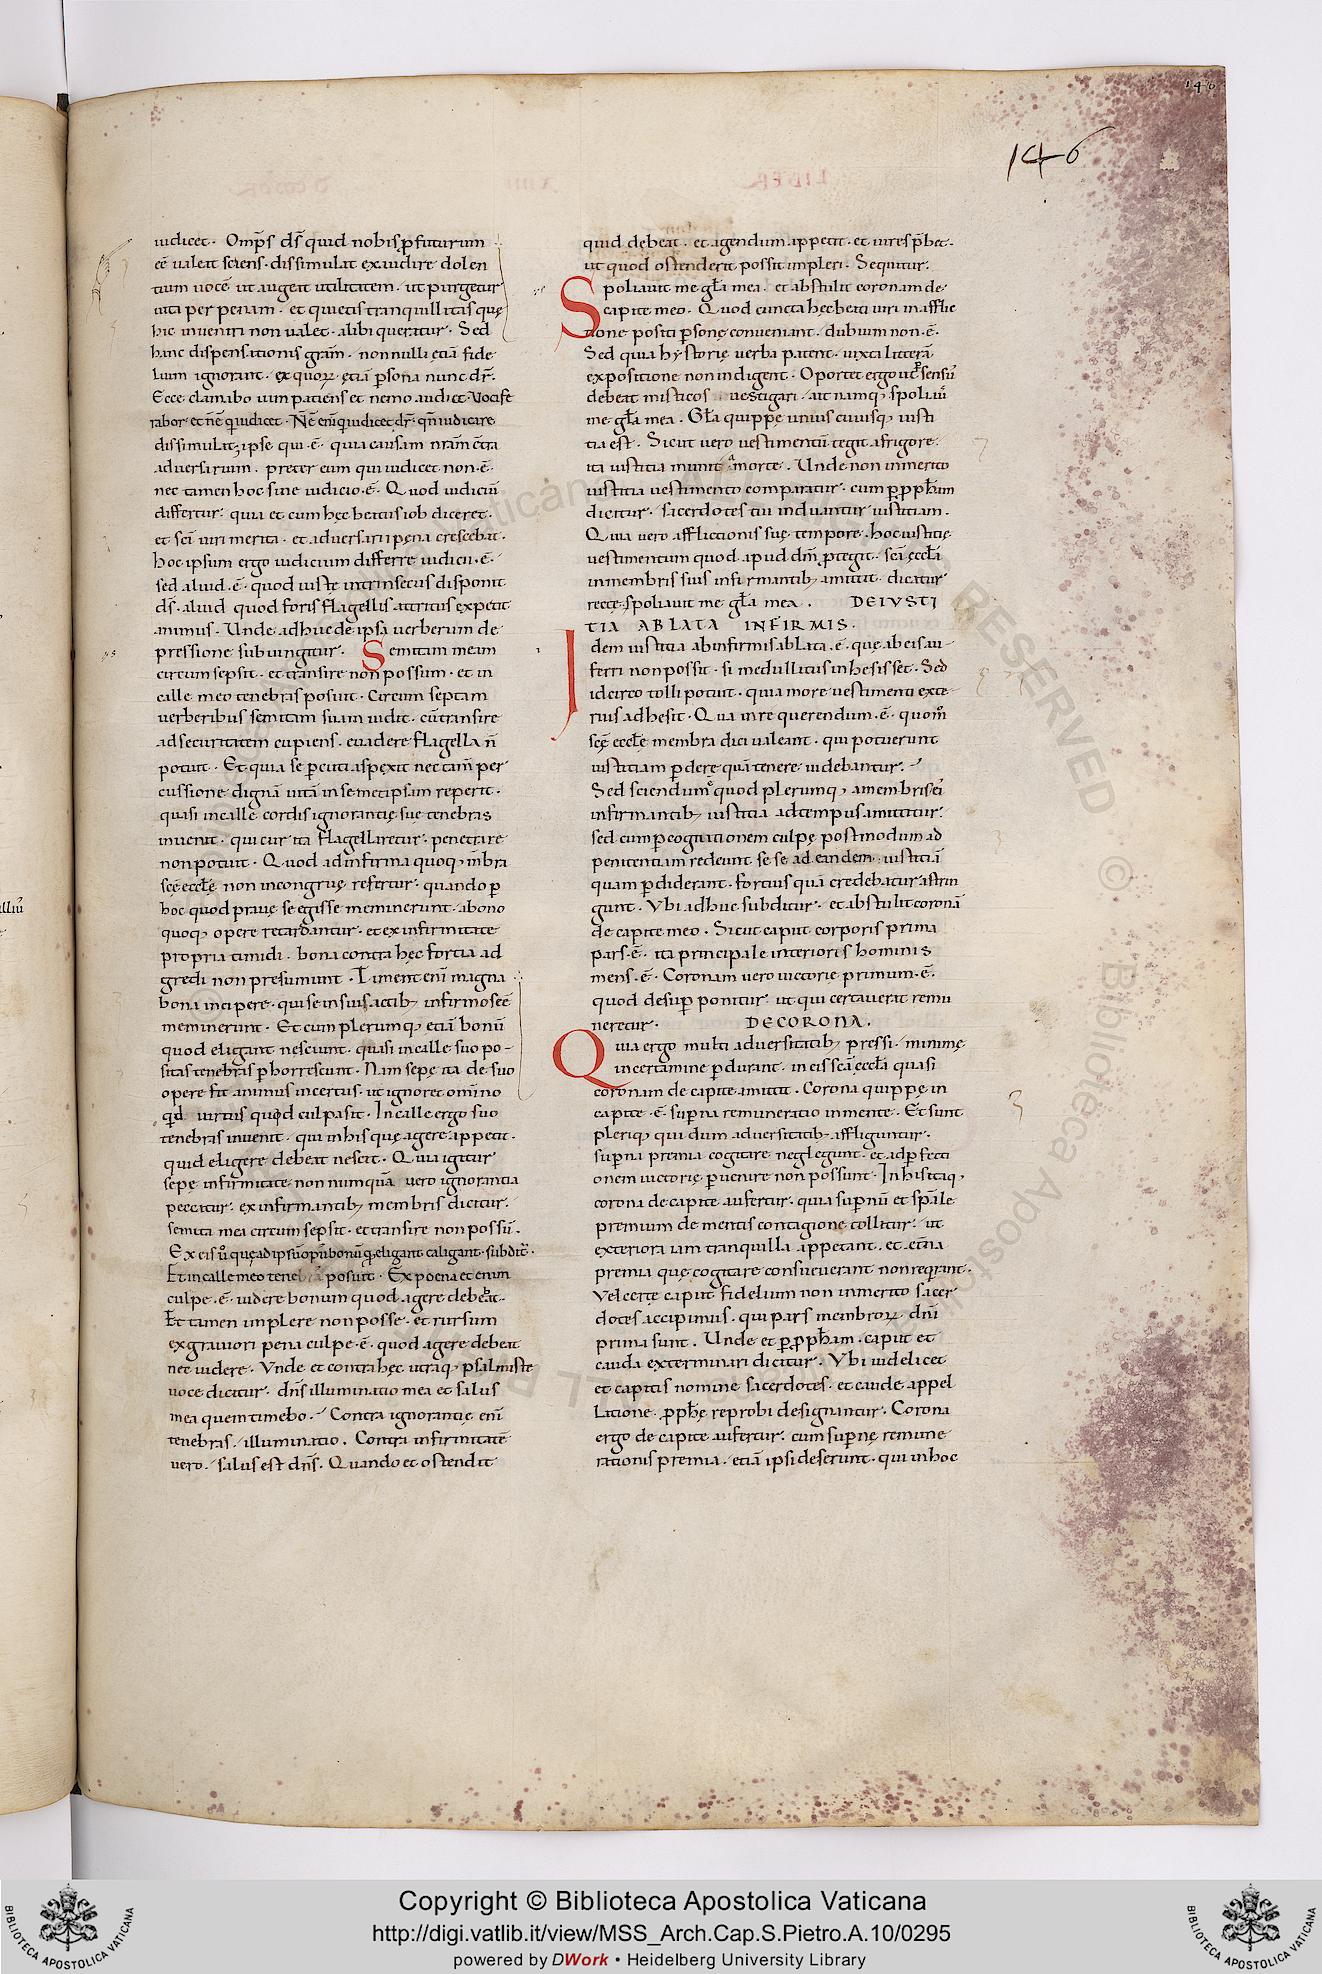 146
146
iudicet. Omp̄s ds̄ quid nobis ꝓfuturum
eē ualeat sciens. dissimulat exaudire dolen
tium uocē ut augeat utilitatem. ut purgetur
uita per penam. et quietis tranquillitas quę
hic inueniri non ualet. alibi queratur. Sed
hanc dispensationis gram̄. nonnulli etiā fide
lium ignorant. ex quoꝝ etiā ꝑsona nunc dr̄.
Ecce clamabo uim patiens et nemo audiet. Vocife
rabor et n̄ ē qui iudicet. N̄ ē eni qui iudicet dr̄. qn̄ iudicare
dissimulat ipse qui ē. quia causam nram̄ c̄tra
aduersarium. preter eum qui iudicet non ē.
nec tamen hoc sine iudicio ē. Quod iudiciū
differtur. quia et cum hęc beatus iob diceret.
et sc̄i uiri merita. et aduersarii pęna crescebat.
hoc ipsum ergo iudicium differre iudicii ē.
sed aliud ē. quod iuste intrinsecus disponit
ds̄. aliud quod foris flagellis attritus expetit
animus. Unde adhuc de ipsa uerberum de
pressione subiungitur. Semitam meam
circum sepsit. et transire non possum. et in
calle meo tenebras posuit. Circum septam
uerberibus semitam suam uidit. cū transire
ad securitatem cupiens. euadere flagella n̄
potuit. Et quia se ꝑcuti aspexit nec tam̄ per
cussione dignā uitā in semetipsum reperit.
quasi in calle cordis ignorantię suę tenebras
inuenit. qui cur ita flagellaretur. penetrare
non potuit. Quod ad infirma quoq; m̄bra
sc̄ę eccłę non incongruę refertur. quando ꝑ
hoc quod prauę se egisse meminerunt. a bono
quoq; opere retardantur. et ex infirmitate
propria timidi. bona contra hęc fortia ad
gredi non presumunt. Timent eni magna
bona incipere. qui se in suis actib; infirmos eē
meminerunt. Et cum plerumq; etiā bonū
quod eligant nesciunt. quasi in calle suo po-
sitas tenebras ꝑhorrescunt. Nam sepę ita de suo
opere fit animus incertus. ut ignoret omino
qd uirtus quod culpa sit. In calle ergo suo
tenebras inuenit. qui in his quę agere appetit.
quid eligere debeat nescit. Quia igitur
sepę infirmitate non numquā uero ignorantia
peccatur. ex infirmantib; membris dicitur.
semita mea circum sepsit. et transire non possū.
Ex eis u̓ quę ad ipsū opꝰ bonū qd eligant caligant. subditr̄.
Et in calle meo tenebras posuit. Ex poena etenim
culpe ē. uidere bonum quod agere debeat.
Et tamen implere non posse. et rursum
ex grauiori pena culpe ē. quod agere debeat
nec uidere. Vnde et contra hęc utraq; psalmiste
uoce dicitur. dn̄s illuminatio mea et salus
mea quem timebo. Contra ignorantię eni
tenebras. illuminatio. Contra infirmitatē
uero. salus est dn̄s. Quando et ostendit
quid dębeat. et agendum appetit. et uires p̄bet.
ut quod ostenderit possit impleri. Sequitur.
Spoliauit me gła mea. et abstulit coronam de
capite meo. Quod cuncta hęc beati uiri in afflic
tione positi ꝑsonę conueniant. dubium non ē.
Sed quia hystorię uerba patent. iuxta litterā
expositione non indigent. Oportet ergo ut sensū
debeat misticos uestigari. ait namq; spoliauit
me gła mea. Gła quippe unius cuiusq; iusti
tia est. Sicut uero uestimentū tegit a frigore.
ita iustitia munit a morte. Unde non inmerito
iustitia uestimento comparatur. cum ꝑ ꝓpħam
dicitur. sacerdotes tui induantur iustitiam.
Quia uero afflictionis suę tempore. hoc iustitię
uestimentum quod apud dm̄ ꝓtegit. sc̄a eccła
in membris suis infirmantib; amittit. dicatur
recte. spoliauit me gła mea. DE IVSTI
TIA ABLATA INFIRMIS.
Idem iustitia ab infirmis ablata ē. quę ab eis au
ferri non possit. si medullitus inhesisset. Sed
idcirco tolli potuit. quia more uestimenti exte-
rius adhesit. Qua in re querendum ē. quom̊
sc̄ę eccłę membra dici ualeant. qui potuerunt
iustitiam ꝑdere quā tenere uidebantur.
Sed sciendum ē quod plerumq; a membris eī
infirmantib; iustitia ad tempus amittitur.
sed cum ꝑ cogitationem culpę postmodum ad
penitentiam redeunt. se se ad eandem iustitiā
quam ꝑdiderant. fortius quā credebatur astrin
gunt. Vbi adhuc subditur. et abstulit coronā
de capite meo. Sicut caput corporis prima
pars ē. ita principale interioris hominis
mens ē. Coronam uero uictorię primum ē.
quod desuꝑ ponitur. ut qui certauerit remu
neretur. DE CORONA.
Quia ergo multi aduersitatib; pressi. minimę
in certamine ꝑdurant. in eis sc̄a eccła quasi
coronam de capite amittit. Corona quippę in
capite ē. suꝑna remuneratio in mente. Et sunt
pleriq; qui dum aduersitatib; affliguntur.
suꝑna premia cogitare neglegunt. et ad ꝑfecti
onem uictorię ꝑuenire non possunt. In his itaq;
corona de capite aufertur. quia suꝑnū et sp̄ale
premium de mentis contagione tollitur. ut
exteriora iam tranquilla appetant. et et̄na
premia quę cogitare consueuerant non reqrant.
Vel certe caput fidelium non inmerito sacer
dotes accipimus. qui pars membroꝝ dn̄i
prima sunt. Unde et ꝑ ꝓpħam. caput et
cauda exterminari dicitur. Vbi uidelicet
et capitis nomine sacerdotes. et caude appel
latione. ꝓpħę reprobi designantur. Corona
ergo de capite aufertur. cum suꝑnę remune
rationis premia. etiā ipsi deserunt. qui in hoc
Copyright © Biblioteca Apostolica Vaticana
http://digi.vatlib.it/view/MSS_Arch.Cap.S.Pietro.A.10/0295
powered by DWork • Heidelberg University Library